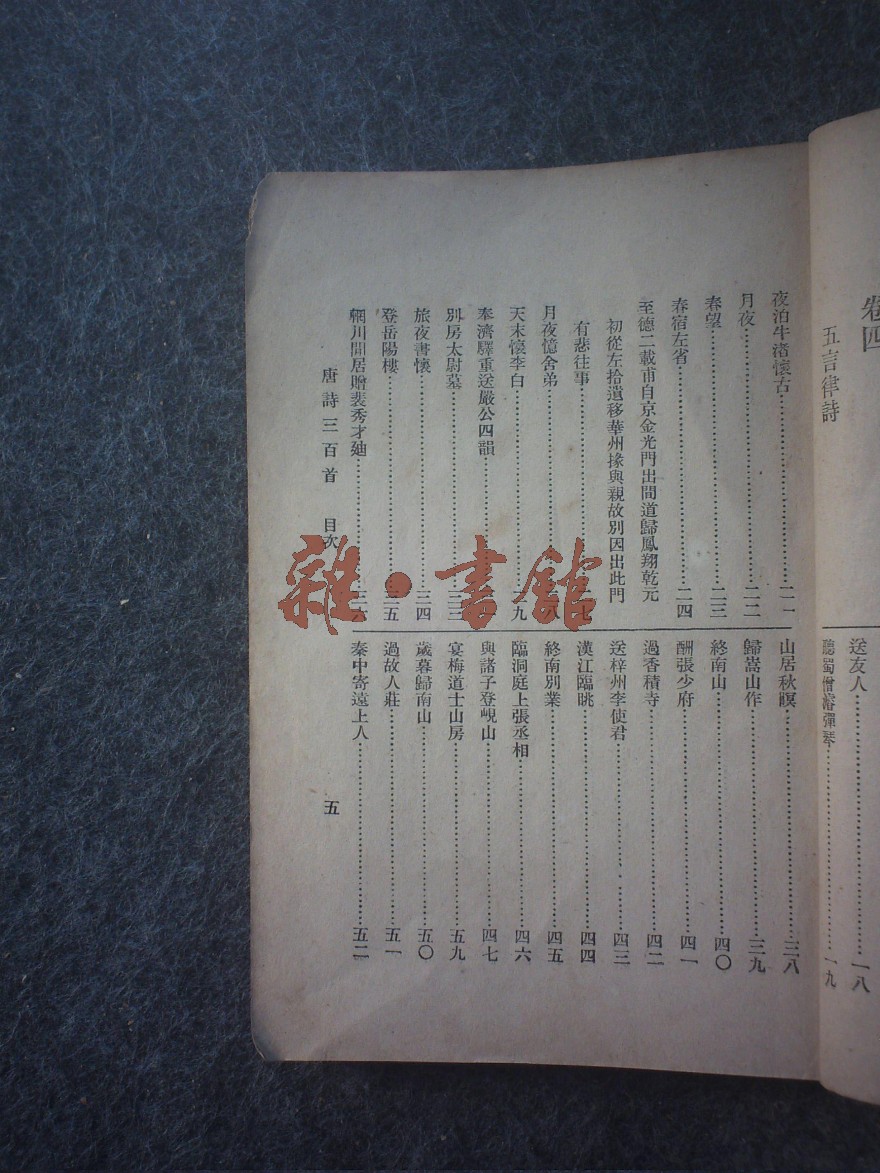 卷四
五言律詩
送友人……一八
聽蜀僧濬彈琴……一九
夜泊牛渚懷古……二一
月夜……二二
春望……二三
春宿左省……二四
至德二載甫自京金光門出間道歸鳳翔乾元
初從左拾遺移華州掾與親故別因出此門
有悲往事……七
月夜憶舍弟……八
天末懷李白……九
奉濟驛重送嚴公四韻
別房太尉墓……三三
旅夜書懷……三四
登岳陽樓……三五
輞川閒居贈裴秀才廸……三六
山居秋暝……三八
歸嵩山作……三九
終南山……四〇
酬張少府……四一
過香積寺……四二
送梓州李使君……四三
漢江臨眺……四四
終南別業……四五
臨洞庭上張丞相……四六
與諸子登峴山……四七
宴梅道士山房……五九
歲暮歸南山……五〇
過故人莊……五一
秦中寄遠上人……五二
唐詩三百首 目次
五
雜·書館